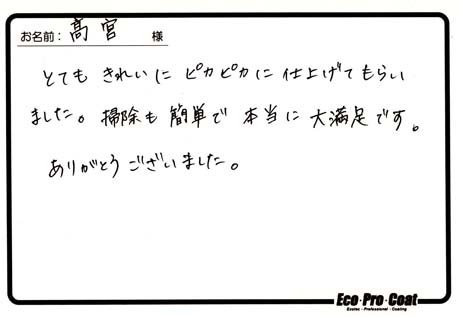 お名前： 髙宮 様
とても きれいに ピカピカに 仕上げて もらい
ました。掃除も 簡単で 本当に 大満足です。
ありがとう ございました。
Eco・Pro・Coat
Ecotec・Professional・Coating